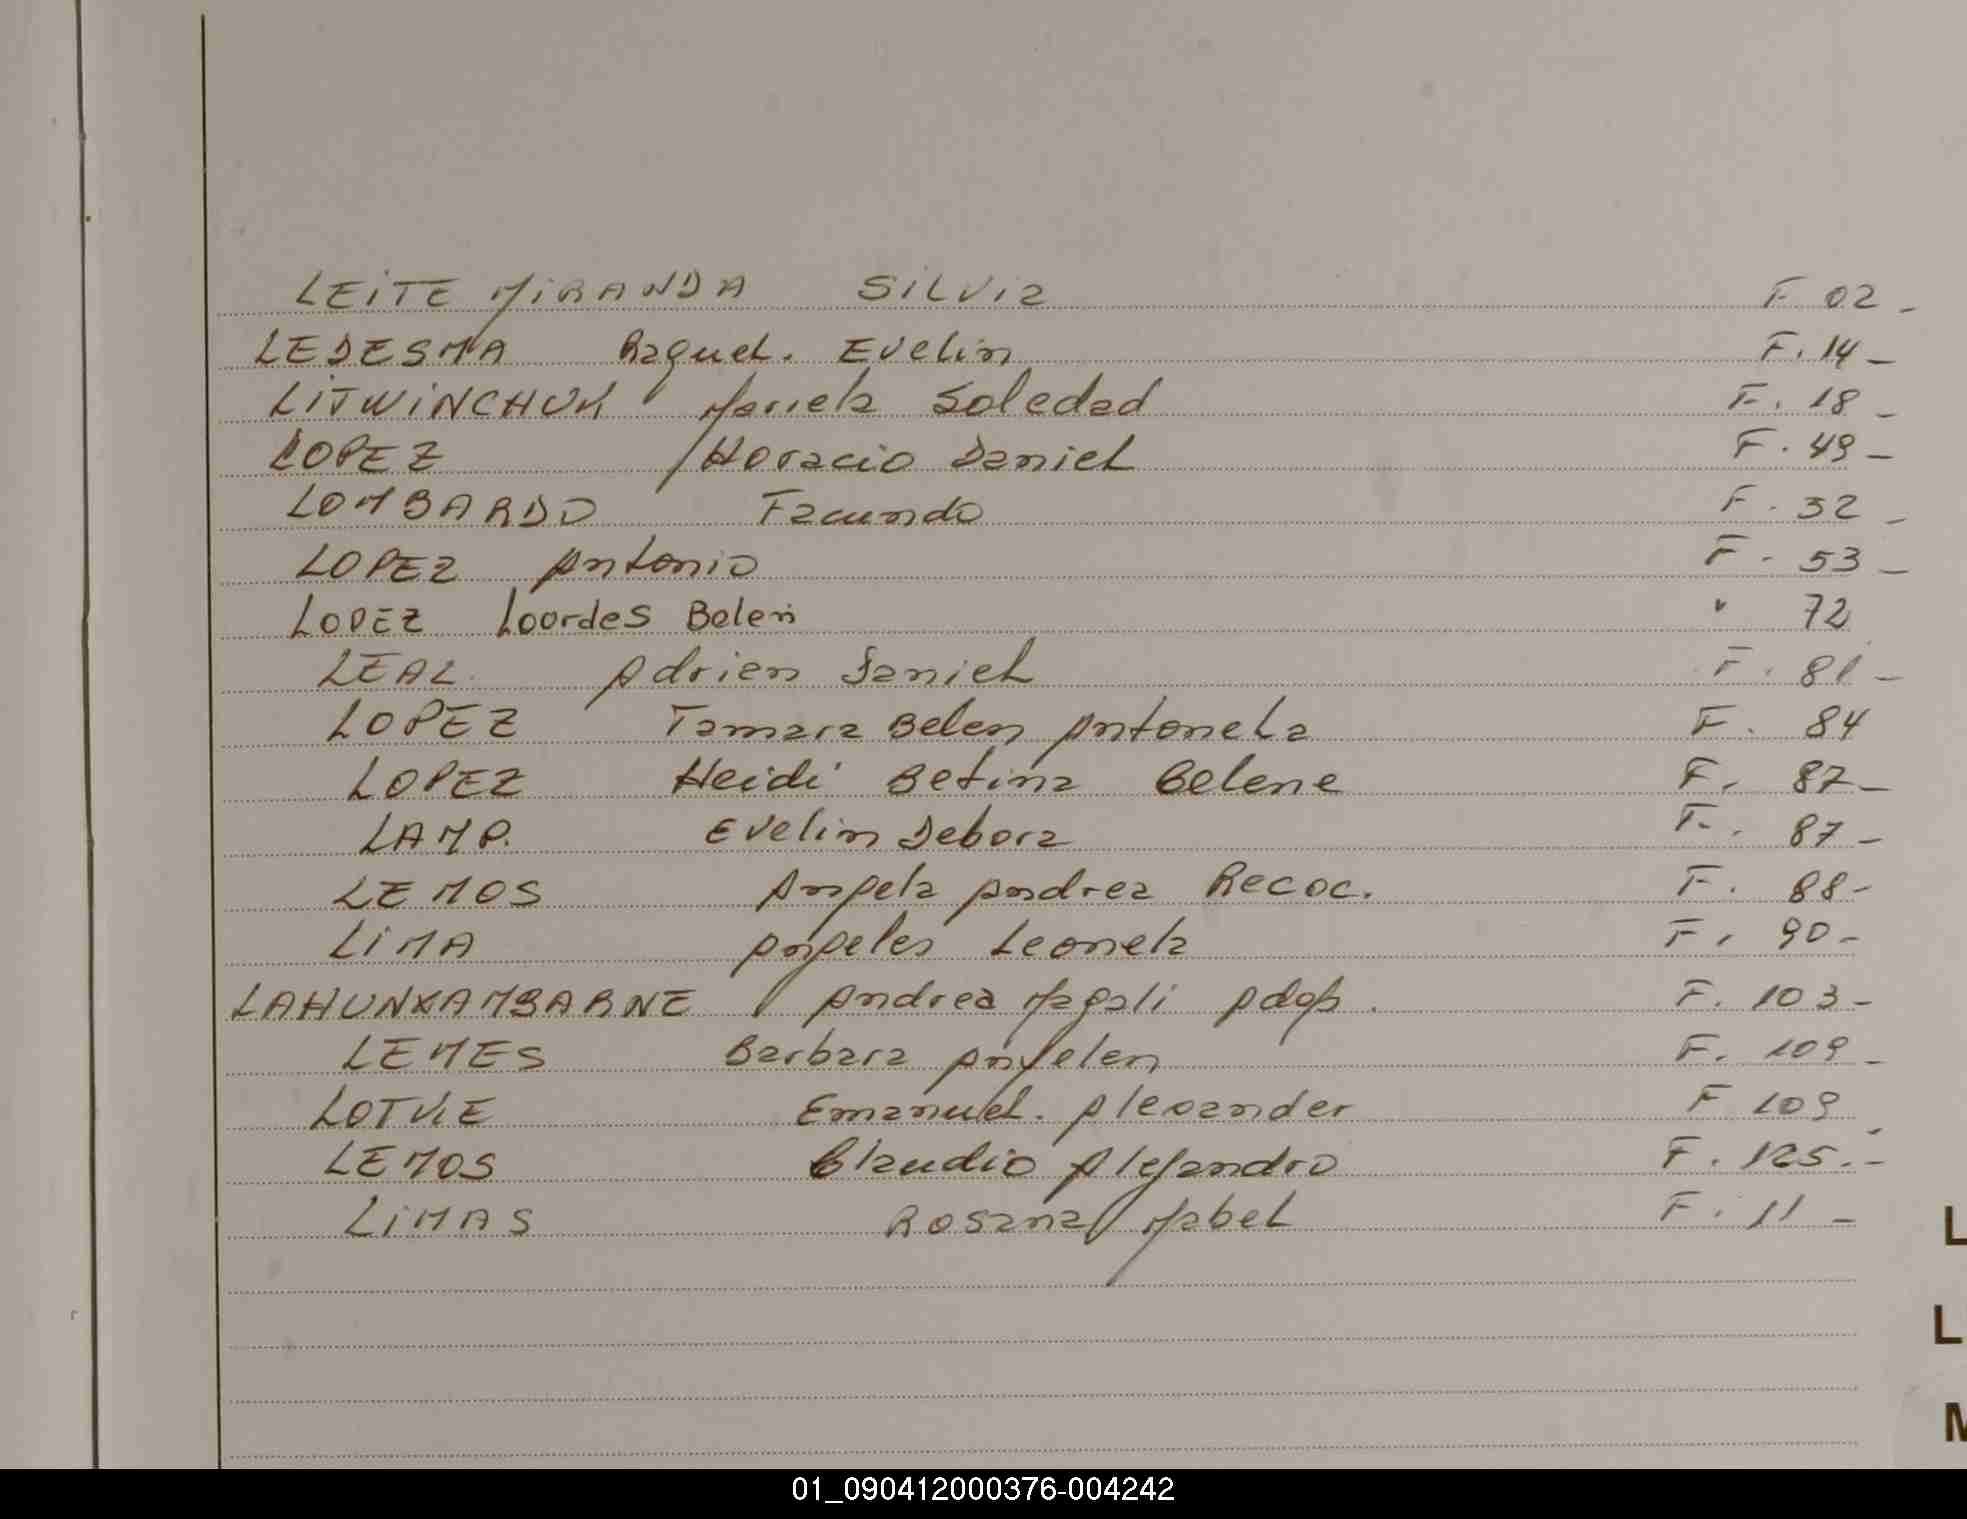 LEITE MIRANDA SILVIA F 02 -
LEDESMA Raquel. Evelin F. 14 -
LITWINCHUK Mariela Soledad F. 18 -
LOPEZ Horacio Daniel F. 49 -
LOMBARDO Facundo F. 32 -
LOPEZ Antonio F. 53 -
LOPEZ Lourdes Belen " 72
LEAL. Adrien Daniel F. 81 -
LOPEZ Tamara Belen Antonela F. 84
LOPEZ Heidi Betina Belene F. 87 -
LAMP. Evelin Debora F. 87 -
LEMOS Angela Andrea Recoc. F. 88 -
LIMA Angeles Leonela F. 90 -
Andrea Magali Adop. F. 103 -
LEMES Barbara Anyelen F. 109 -
Emanuel. Alexander F 109
LEMOS Claudio Alejandro F. 125. -
LIMAS Rosana Mabel F. 11 -
L
L
M
01_090412000376-004242